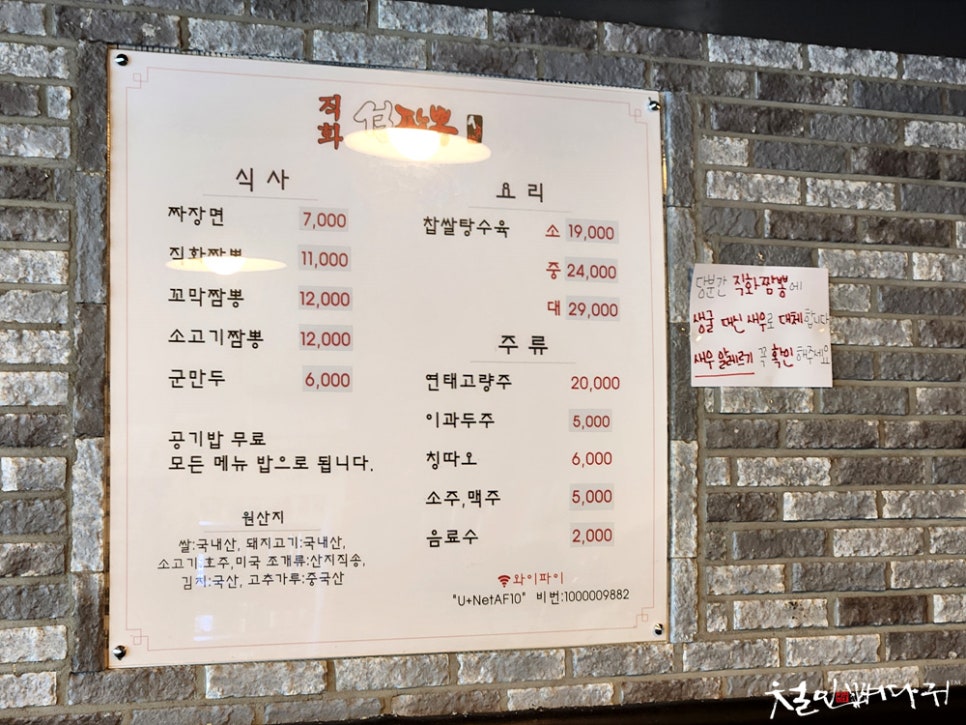 직화
짬뽕
식사
짜장면 7,000
직화짬뽕 11,000
꼬막짬뽕 12,000
소고기짬뽕 12,000
군만두 6,000
공기밥 무료
모든 메뉴 밥으로 됩니다.
원산지
쌀:국내산, 돼지고기:국내산,
소고기:호주,미국 조개류:산지직송,
김치:국산, 고추가루:중국산
요리
찹쌀탕수육 소 19,000
중 24,000
대 29,000
주류
연태고량주 20,000
이과두주 5,000
칭따오 6,000
소주,맥주 5,000
음료수 2,000
와이파이
"U+NetAF10" 비번:1000009882
당분간 직화짬뽕에
생굴 대신 새우로 대체합니다
새우 알레르기 꼭 확인해주세요
철인뼈다귀